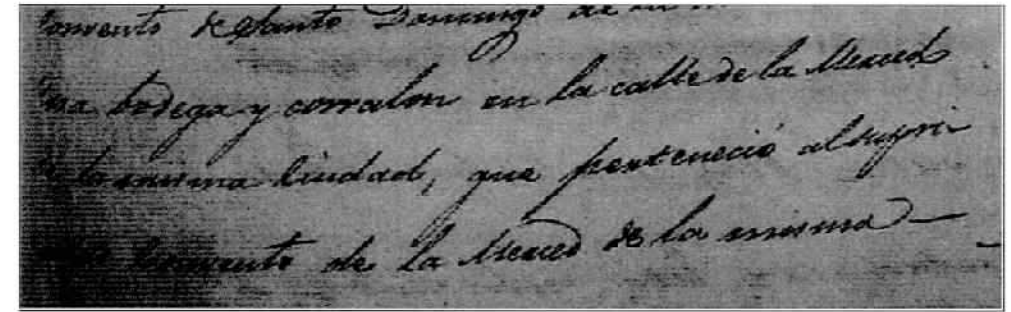 Convento de Santo Domingo de la
una bodega y corralon en la calle de la Merced
de la misma Ciudad, que perteneció al supri-
Convento de la Merced de la misma —